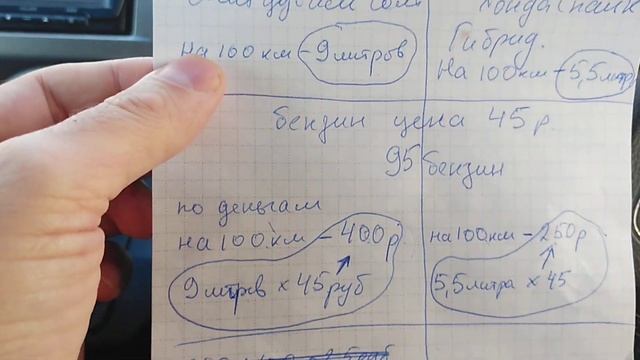 на 100 км - 9 литров
Гибрид.
На 100 км - 5,5 литр
бензин цена 45 р.
95 бензин
по деньгам
на 100 км - 400 р
9 литров × 45 руб
на 100 км - 250 р
5,5 литра × 45